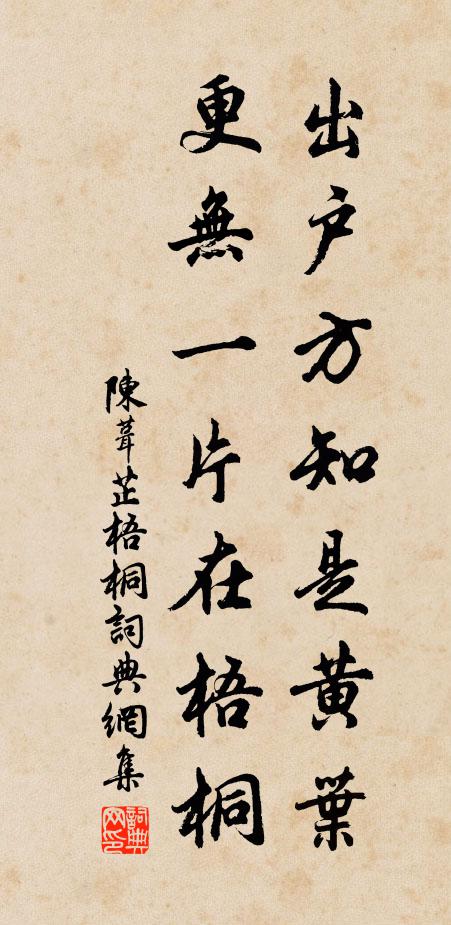 出戶方知是黃葉
更無一片在梧桐
陳葺芷梧桐詞典網集
詞典网印